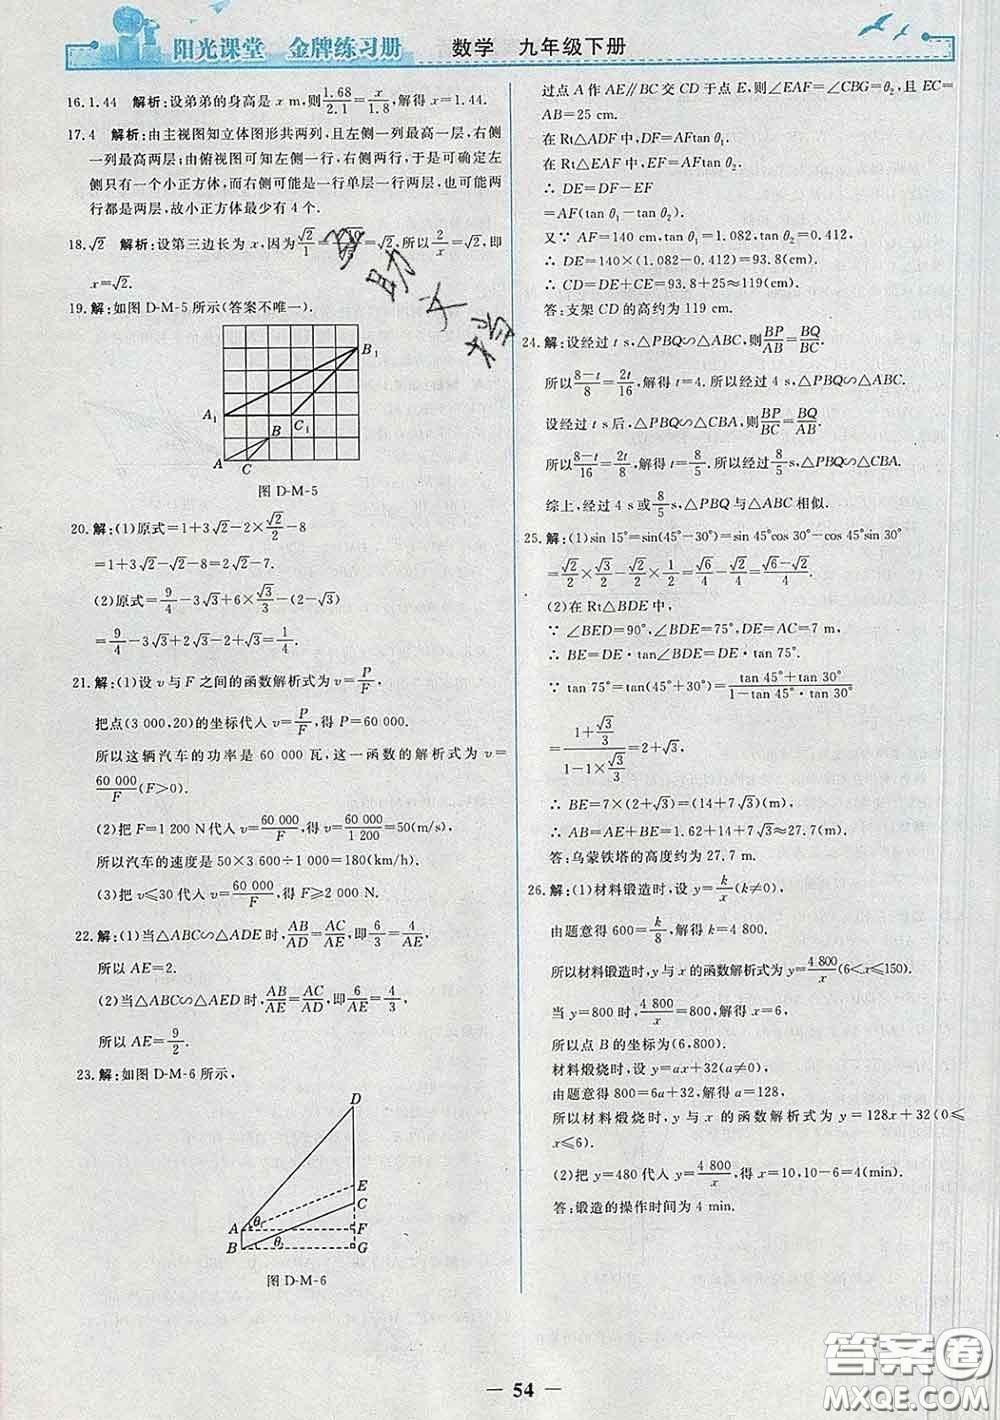 阳光课堂 金牌练习册 数学 九年级下册
16.1.44 解析:设弟弟的身高是 x m,则1.68/2.1=x/1.8,解得 x=1.44.
17.4 解析:由主视图知立体图形共两列,且左侧一列最高一层,右侧
一列最高两层;由俯视图可知左侧一行,右侧两行,于是可确定左
侧只有一个小正方体,而右侧可能是一行单层一行两层,可能两
行都是两层,故小正方体最少有 4 个.
18.√2 解析:设第三边长为 x,因为√2/1=√10/√5=√2,所以2/x=√2,即
x=√2.
19.解:如图 D-M-5 所示(答案不唯一).
B₁
A₁
C₁
B
A
C
图 D-M-5
20.解:(1)原式=1+3√2-2×√2/2-8
=1+3√2-√2-8=2√2-7.
(2)原式=9/4-3√3+6×√3/3-(2-√3)
=9/4-3√3+2√3-2+√3=1/4.
21.解:(1)设 v 与 F 之间的函数解析式为 v=P/F,
把点(3 000,20)的坐标代入 v=P/F,得 P=60 000.
所以这辆汽车的功率是 60 000 瓦,这一函数的解析式为 v=
60 000/F(F>0).
(2)把 F=1 200 N代入 v=60 000/F,得 v=60 000/1 200=50(m/s),
所以汽车的速度是 50×3 600÷1 000=180(km/h).
(3)把 v≤30 代入 v=60 000/F,得 F≥2 000 N.
22.解:(1)当△ABC∽△ADE 时,AB/AD=AC/AE,即6/3=4/AE,
所以 AE=2.
(2)当△ABC∽△AED 时,AB/AE=AC/AD,即6/AE=4/3,
所以 AE=9/2.
23.解:如图 D-M-6 所示,
D
E
C
A θ₁ F
B θ₂ G
图 D-M-6
过点 A 作 AE∥BC 交 CD 于点 E,则∠EAF=∠CBG=θ₂,且 EC=
AB=25 cm.
在 Rt△ADF 中,DF=AFtan θ₁.
在 Rt△EAF 中,EF=AFtan θ₂.
∴ DE=DF-EF
=AF(tan θ₁-tan θ₂).
又∵ AF=140 cm,tan θ₁=1.082,tan θ₂=0.412,
∴ DE=140×(1.082-0.412)=93.8(cm).
∴ CD=DE+CE=93.8+25≈119(cm).
答:支架 CD 的高约为 119 cm.
24.解:设经过 t s,△PBQ∽△ABC,则BP/AB=BQ/BC.
所以8-t/8=2t/16,解得 t=4.所以经过 4 s,△PBQ∽△ABC.
设经过 t s后,△PBQ∽△CBA,则BP/BC=BQ/AB.
所以8-t/16=2t/8,解得 t=8/5.所以经过8/5 s,△PBQ∽△CBA.
综上,经过 4 s或8/5 s,△PBQ 与△ABC 相似.
25.解:(1)sin 15°=sin(45°-30°)=sin 45°cos 30°-cos 45°sin 30°
=√2/2×√3/2-√2/2×1/2=√6/4-√2/4=√6-√2/4.
(2)在 Rt△BDE 中,
∵ ∠BED=90°,∠BDE=75°,DE=AC=7 m,
∴ BE=DE·tan∠BDE=DE·tan 75°.
∵ tan 75°=tan(45°+30°)=tan 45°+tan 30°/1-tan 45°·tan 30°
=1+√3/3/1-1×√3/3=2+√3,
∴ BE=7×(2+√3)=(14+7√3)(m),
∴ AB=AE+BE=1.62+14+7√3≈27.7(m).
答:乌蒙铁塔的高度约为 27.7 m.
26.解:(1)材料锻造时,设 y=k/x(k≠0),
由题意得 600=k/8,解得 k=4 800.
所以材料锻造时,y与 x 的函数解析式为 y=4 800/x(6<x≤150).
当 y=800 时,4 800/x=800,解得 x=6,
所以点 B 的坐标为(6,800).
材料煅烧时,设 y=ax+32(a≠0),
由题意得 800=6a+32,解得 a=128,
所以材料煅烧时,y 与 x 的函数解析式为 y=128x+32(0≤
x≤6).
(2)把 y=480 代入 y=4 800/x,得 x=10,10-6=4(min).
答:锻造的操作时间为 4 min.
54
答案圈
MXQE.COM